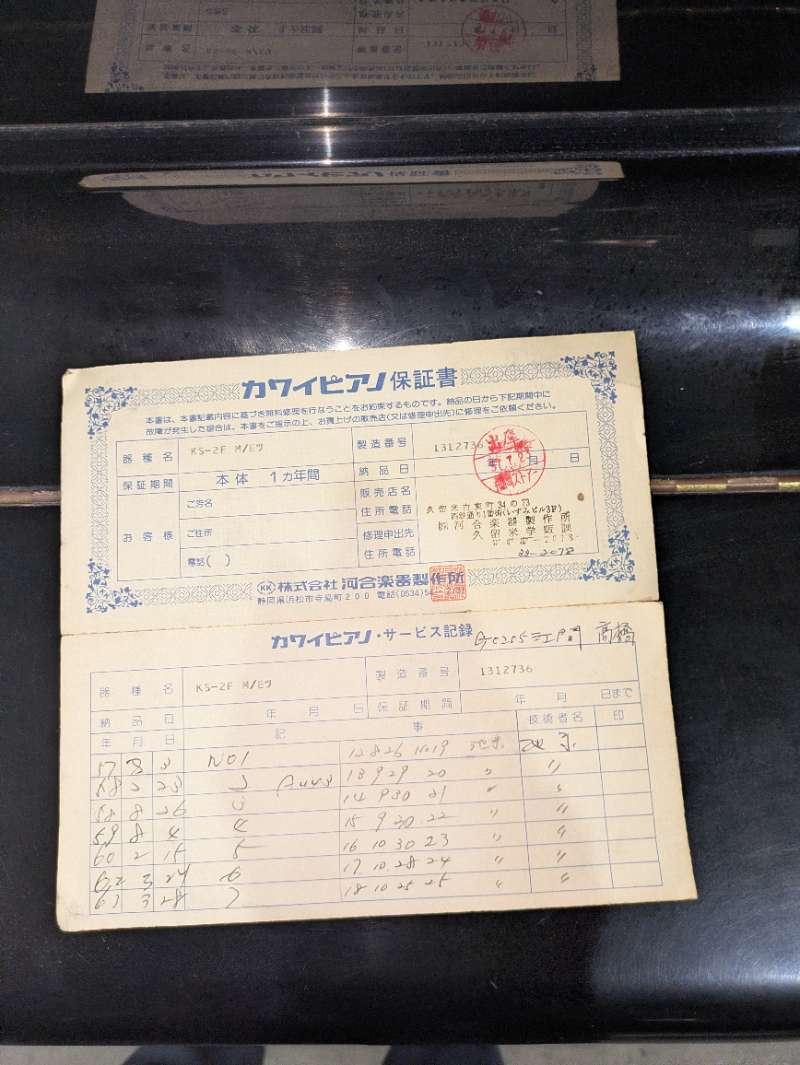 カワイピアノ保証書
本書は、本書記載内容に基づき無料修理を行なうことをお約束するものです。納品の日から下記期間中に
故障が発生した場合は、本書をご提示の上、お買上げの販売店(又は修理申出先)に修理をご依頼ください。
器種名 KS-2F M/Eツ 製造番号 1312736
保証期間 本体 1ヵ年間 納品日 年 月 日
お客様 ご芳名
ご住所
電話( )
販売店名
住所電話
修理申出先
住所電話
久留米市東町34の73
㈱河合楽器製作所
久留米
22-2078
KK 株式会社 河合楽器製作所
静岡県浜松市寺島町200 電話(0534)
カワイピアノ・サービス記録 高橋
器種名 KS-2F M/Eツ 製造番号 1312736
納品日 年 月 日 保証期間 年 月 日まで
年 月 日 記事 技術者名 印
57 8 3 NO1 12 8 26 NO19
58 2 23 2 13 9 29 20 〃 〃
58 8 26 3 14 9 30 21 〃 〃
59 8 4 4 15 9 30 22 〃 〃
60 2 15 5 16 10 30 23 〃 〃
62 3 24 6 17 10 28 24 〃 〃
63 3 28 7 18 10 25 25 〃 〃